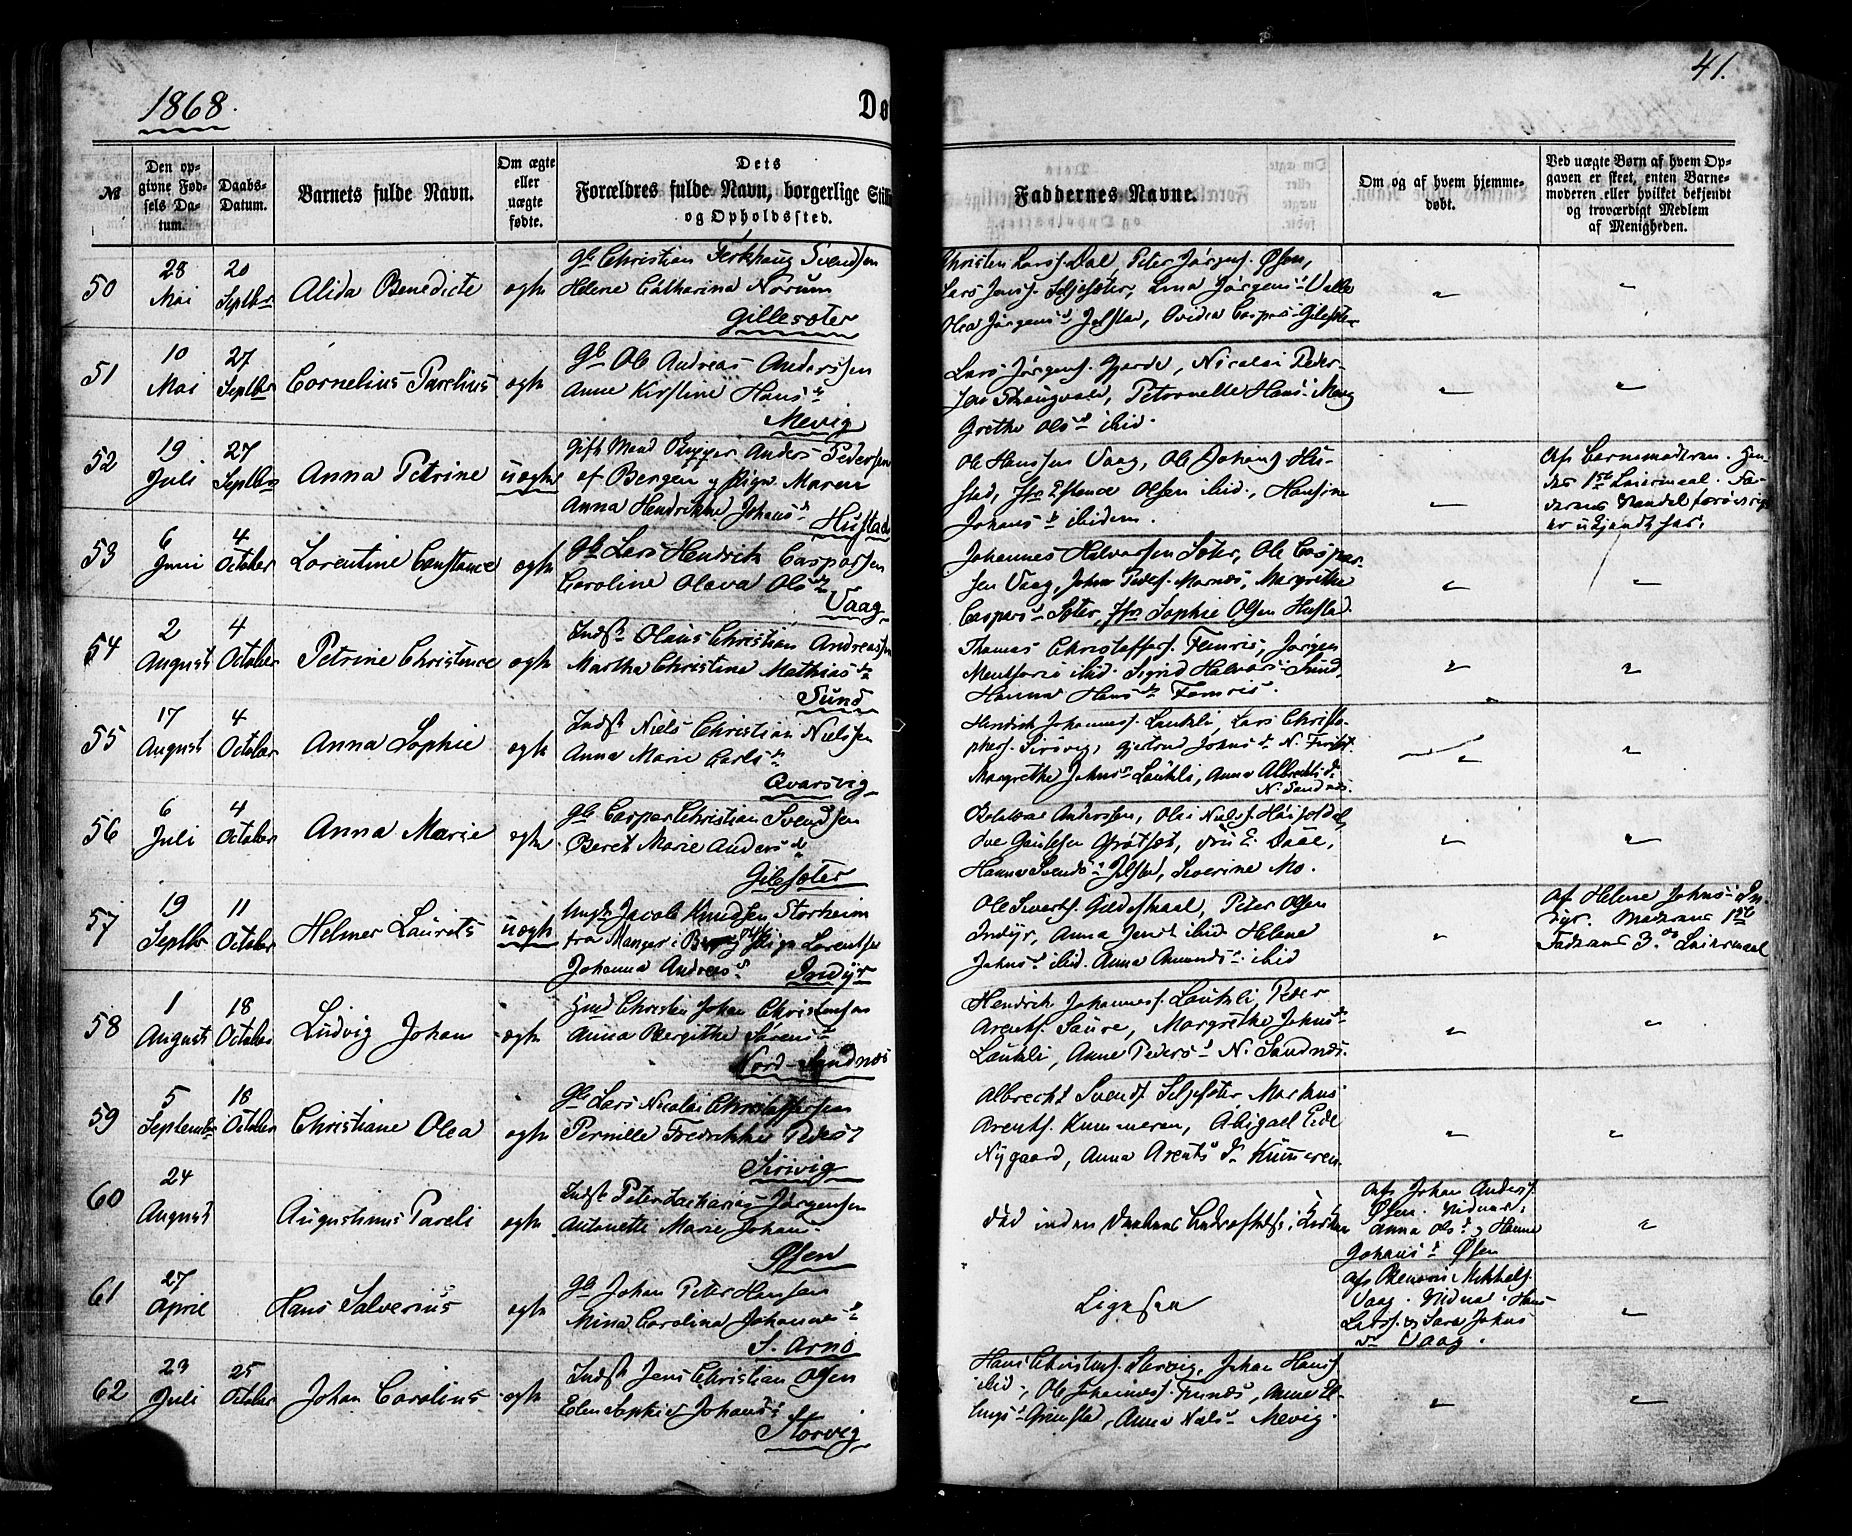 1868.
Dø
41.
№
Den op-
givne Fød-
sels Da-
tum.
Daabs-
Datum.
Barnets fulde Navn.
Om ægte
eller
uægte
fødte.
Dets
Forældres fulde Navn, borgerlige Stilli
og Opholdssted.
Faddernes Navne.
Om og af hvem hjemme-
døbt.
Ved uægte Børn af hvem Op-
gaven er skeet, enten Barne-
moderen eller hvilket bekjendt
og troværdigt Medlem
af Menigheden.
50
28
Mai
20
Septbr
Alida Benedicte
egte
Christian Svendsen
Helene Catharina Norum
Gillesæter
Christen Larss. Dal Peter Jørgens. Øsen,
Lars Jenss. Seljesæter, Jørgens Valle
Olea Jørgensd Jelstad,
51
10
Mai
27
Septbr
Cornelius Parelius
egte
Gb Ole Andreas Anderssen
Anne Kirstine Hansd
Mevig
Lars Jørgens. Gjerde, Nicolai Peder-
sen Petronelle Hans. Mevig
Grethe Olsd ibid.
52
19
Juli
27
Septbr
Anna Petrine
uegte
Gift Mand Anders Pedersen
af Bergen og Pige Maren
Anna Hendrikke Johansd
Hustad
Ole Hanssen Vaag, Ole Johans Hu-
stad, Jfr Olsen ibid., Hansine
Johansd ibidem.
Af barnemoderen.
des 1ste Leiermaal. Fa-
53
6
Juni
4
October
Lorentine Constance
egte
Gb Lars Hendrik Caspersen
Caroline Olava Olsd
Vaag
Johannes Halvorsen Sæter, Ole Casper-
sen Vaag, Johan Peders. Marnæs, Margrethe
Caspersd Sæter, Jfr Sophie Olsen Hustad.
54
2
August
4
October
Petrine Christence
egte
Indst Olaus Christian Andreassen
Martha Christine Mathiasd
Sund
Thomas Christoffers. Femris, Jørgen
ibid. Sigrid Halvors. Sund,
Hanna Hansd Femris.
55
17
August
4
October
Anna Sophie
egte
Indst Niels Christian Nielssen
Anna Marie Carlsd
Qvarsvig
Hendrik Johanness. Laukli, Lars Christo-
phers. Sirivig, Gjertrud Johnsd N.
Margrethe Johnsd Laukli, Anna Albrechtsd
N. Sandnæs.
56
6
Juli
4
October
Anna Marie
egte
Gb Casper Christian Svendsen
Beret Marie Andersd
Gilesæter
Anderssen, Ole Niels.
Fru E. Daae,
Hanna Svendsd Jelstad, Severine Mo.
57
19
Septbr
11
October
Helmer Laurits
uegte
Ungk Jacob Knudsen Storheim
fra Manger i Bergen Pige Lorentse
Johanna Andreasd Indyr
Ole Siverts. Gildeskaal, Peter Olsen
Indyr, Anna Jensd ibid Helene
Johnsd ibid. Anna Amundsd ibid
Af Helene Johnsd In-
dyr. Moderens 1ste
Faderens 3die Leiermaal
58
1
August
18
October
Ludvig Johan
egte
Christen Johan Christensen
Anna Bergithe Sørensd
Nord-Sandnæs
Hendrik Johanness. Laukli, Peder
Arents. Saure, Margrethe Johnsd
Laukli, Anne Pedersd N. Sandnæs.
59
5
Septembr
18
October
Christiane Olea
egte
Gb Lars Nicolai Christoffersen
Pernille Fredrikke Pedersd
Sirivig
Albrecht Svends Seljesæter Markus
Arents. Kummeren, Abigael Eide
Nygaard, Anna Arentsd Kummeren
60
24
August
Augustinus Pareli
egte
Indst Peter Zacharias Jørgensen
Antonette Marie Johansd
Øsen
død inden Daabens Bekræftelse i Kirken
Af Johan Anders.
Øsen. Vidner:
Anna Olsd og Hanne
Johansd Øsen
61
27
April
Hans Salverius
egte
Gb Johan Peter Hansen
Mina Carolina Johannesd
S. Arnø
Ligesaa
Af Mikkels.
Vaag. Vidner: Hans
Larss. & Sara Johns
d Vaag.
62
23
Juli
25
October
Johan Carolius
egte
Indst Jens Christian Olsen
Elen Sophie Johansd
Storvig
Hans Christens. Storvig, Johan Hanss.
ibid., Ole Johanness. Anne El-
lingsd Grimstad, Anna Nielsd Mevig.